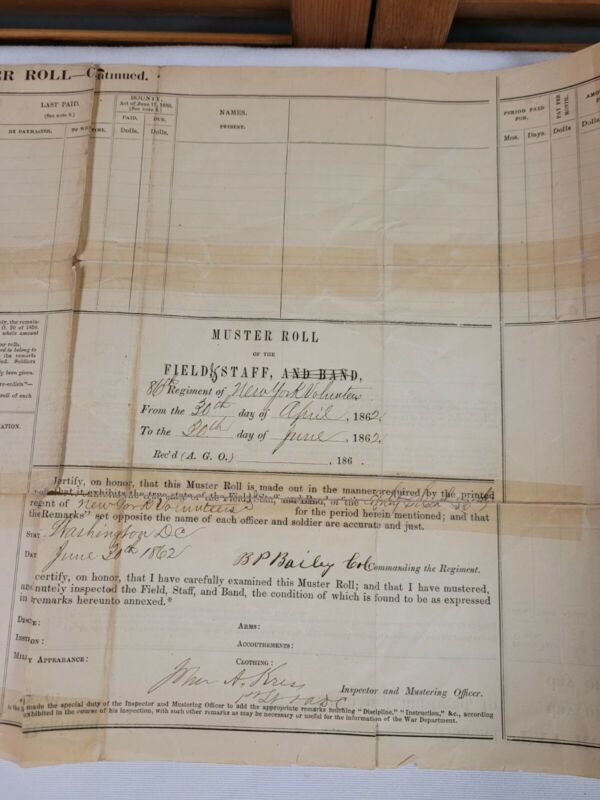 ER ROLL—Cntinued.
LAST PAID.
(See note 8.)
BY PAYMASTER.
TO
TIME.
BOUNTY,
Act of June 17, 1850.
(See note 8.)
PAID.
DUE.
Dolls.
Dolls.
NAMES.
PRESENT:
PERIOD PAID
FOR.
Mos.
Days.
PAY PER
MONTH.
Dolls
AMO
Dolls.
ly, the remain-
O. 20 of 1859.
whole amount
er rolls.
ed to belong to
the remarks
ed. Soldiers
ly been given.
re-enlists"—
roll of each
ATION.
MUSTER ROLL
OF THE
FIELD & STAFF, AND BAND,
86th Regiment of New York Volunteers
From the 30th day of April, 1862.
To the 30th day of June, 1862
Rec'd (A. G. O.) , 186 .
ertify, on honor, that this Muster Roll is made out in the manner required by the printed
it exhibits the true state of the Field, Staff, and Band, of the
regent of New York Volunteers for the period herein mentioned; and that
the Remarks" set opposite the name of each officer and soldier are accurate and just.
STAT Washington DC
DAT June 30th 1862
B P Bailey Col Commanding the Regiment.
certify, on honor, that I have carefully examined this Muster Roll; and that I have mustered,
nutely inspected the Field, Staff, and Band, the condition of which is found to be as expressed
in remarks hereunto annexed.*
ARMS:
ACCOUTREMENTS:
CLOTHING:
APPEARANCE:
Inspector and Mustering Officer.
made the special duty of the Inspector and Mustering Officer to add the appropriate remarks touching "Discipline," "Instruction," &c., according
exhibited in the course of his inspection, with such other remarks as may be necessary or useful for the information of the War Department.